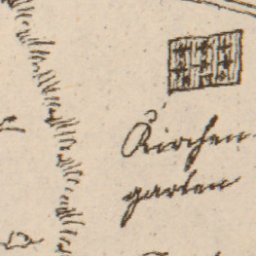 Kirchen-
garten